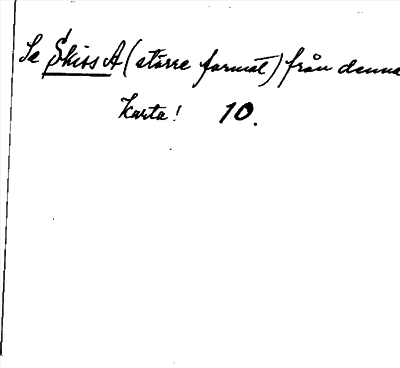 Se Skiss A (större format) från denna
Karta! 10.